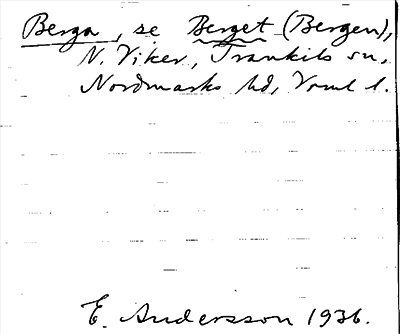 Berga, se Berget (Bergen),
N. Viker, Trankils sn,
Nordmarks hd, Vrml l.
E. Andersson 1936.